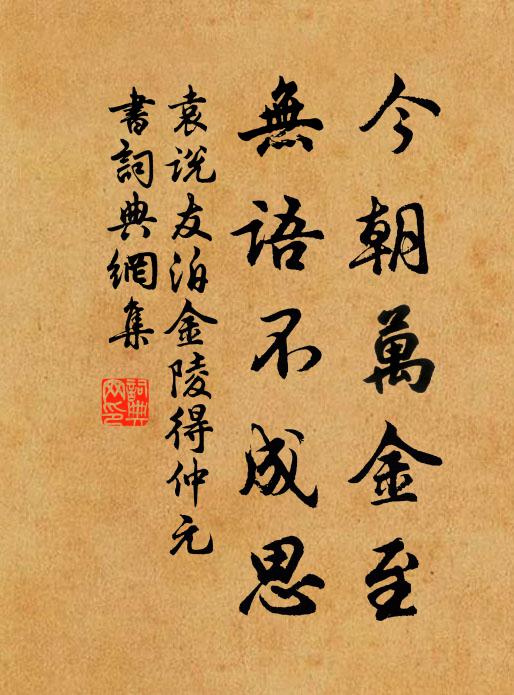 今朝萬金至
無語不成思
袁說友泊金陵得仲元
書詞典網集